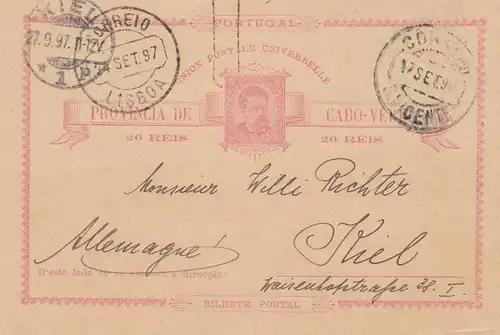 PORTUGAL
UNION POSTALE UNIVERSELLE
PROVINCIA DE CABO-VERDE
20 RÉIS 20 RÉIS
KIEL
27.9.97. 11-12V.
* 1
CORREIO
SET. 97
LISBOA
CORREIO
17 SET. 9
S. VICENTE
Monsieur Willi Richter
Allemagne!
Kiel
Waisenhofstraße 38. I.
D'este lado só se escreve a direcção.
BILHETE POSTAL